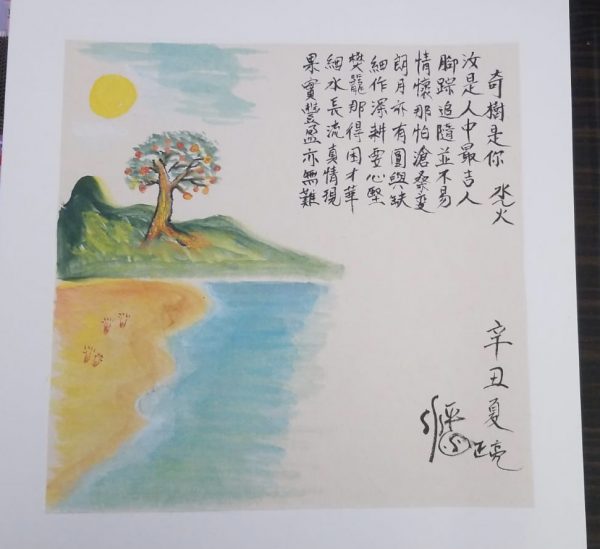 奇樹是你 水火
汝是人中最吉人
腳踪追隨並不易
情懷那怕滄桑變
朗月亦有圓與缺
細作深耕靈心堅
樊籠那得困才華
細水長流真情現
果實豐盛亦無難
辛丑夏
正亮